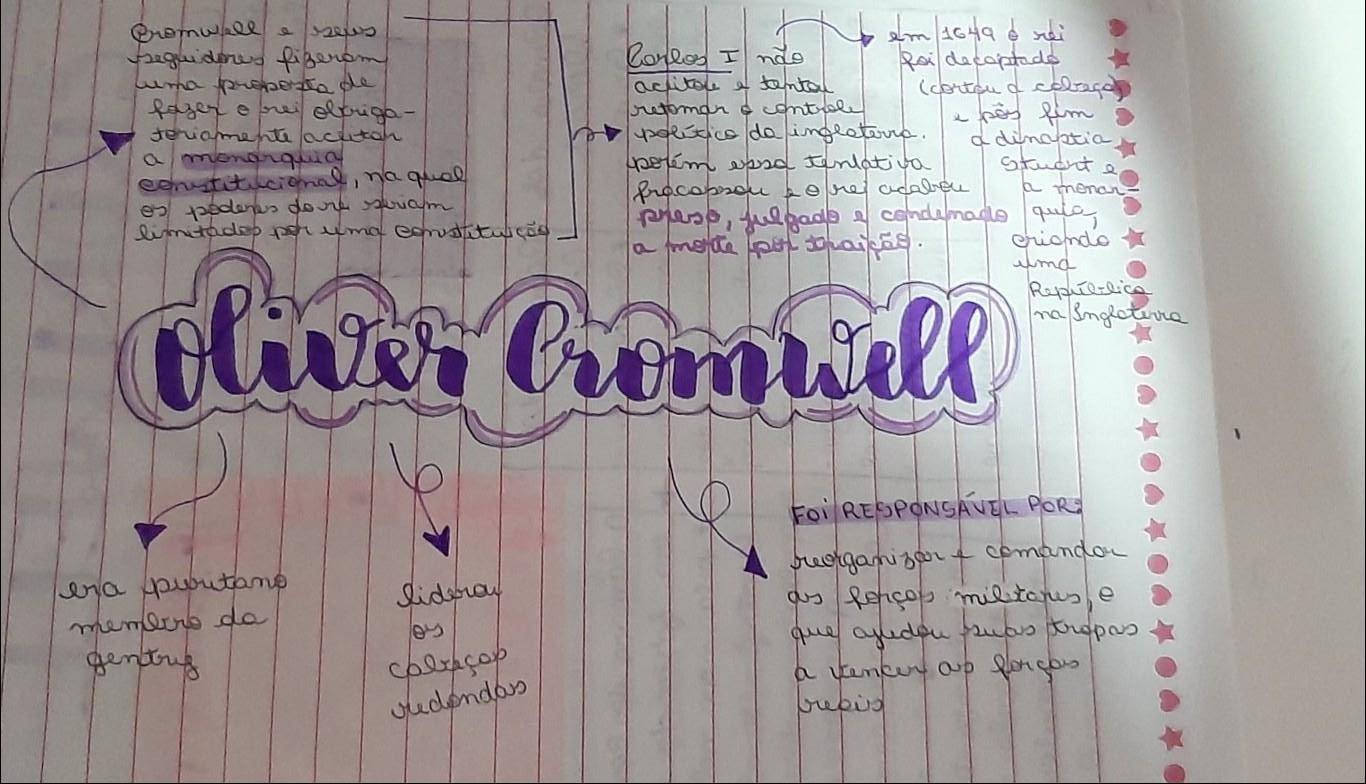 Cromwell e seus
seguidores fizeram
uma proposta de
fazer o rei obriga-
toriamente aceitar
a monarquia
constitucional, na qual
os poderes do rei seriam
limitados por uma constituição
Carlos I não
aceitou e tentou
retomar o controle
político da inglaterra.
porém essa tentativa
fracassou e o rei acabou
preso, julgado e condenado
a morte por traição.
em 1649 o rei
foi decaptado
(cortou a cabeça)
e pôs fim
a dinastia
Stuart e
a monar-
quia,
criando
uma
República
na Inglaterra
Oliver Cromwell
era puritano
membro da
gentry
liderou
os
cabeças
redondas
FOI RESPONSÁVEL POR:
reorganizar e comandar
as forças militares, o
que ajudou suas tropas
a vencer as forças
reais